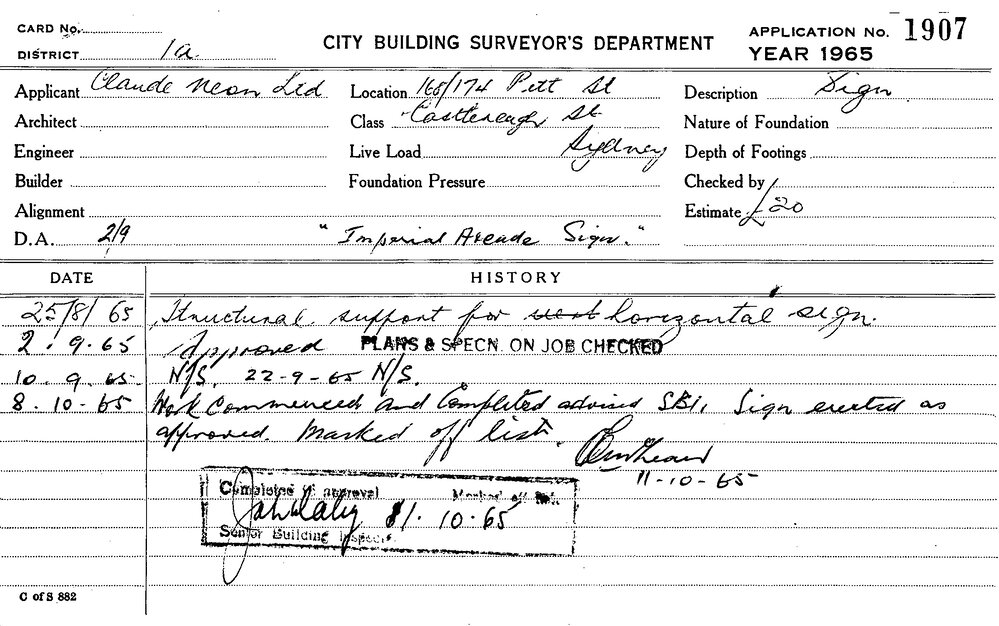 CARD No.
CITY BUILDING SURVEYOR'S DEPARTMENT
APPLICATION No. 1907
DISTRICT 1a
YEAR 1965
Applicant Claude Neon Ltd Location 168/174 Pitt St Description Sign
Architect Class Castlereagh St Nature of Foundation
Engineer Live Load Sydney Depth of Footings
Builder Foundation Pressure Checked by
Alignment Estimate £20
D.A. 2/9 "Imperial Arcade Sign."
DATE HISTORY
25/8/65 Structural support for vert horizontal sign.
2.9.65 Approved PLANS & SPECN. ON JOB CHECKED
10.9.65 N/S. 22-9-65 N/S.
8.10.65 Work Commenced and Completed advised SBI, Sign erected as
approved. Marked off list.
11-10-65
Completed approval Marked off list
10.65
Senior Building Inspector.
C of S 882